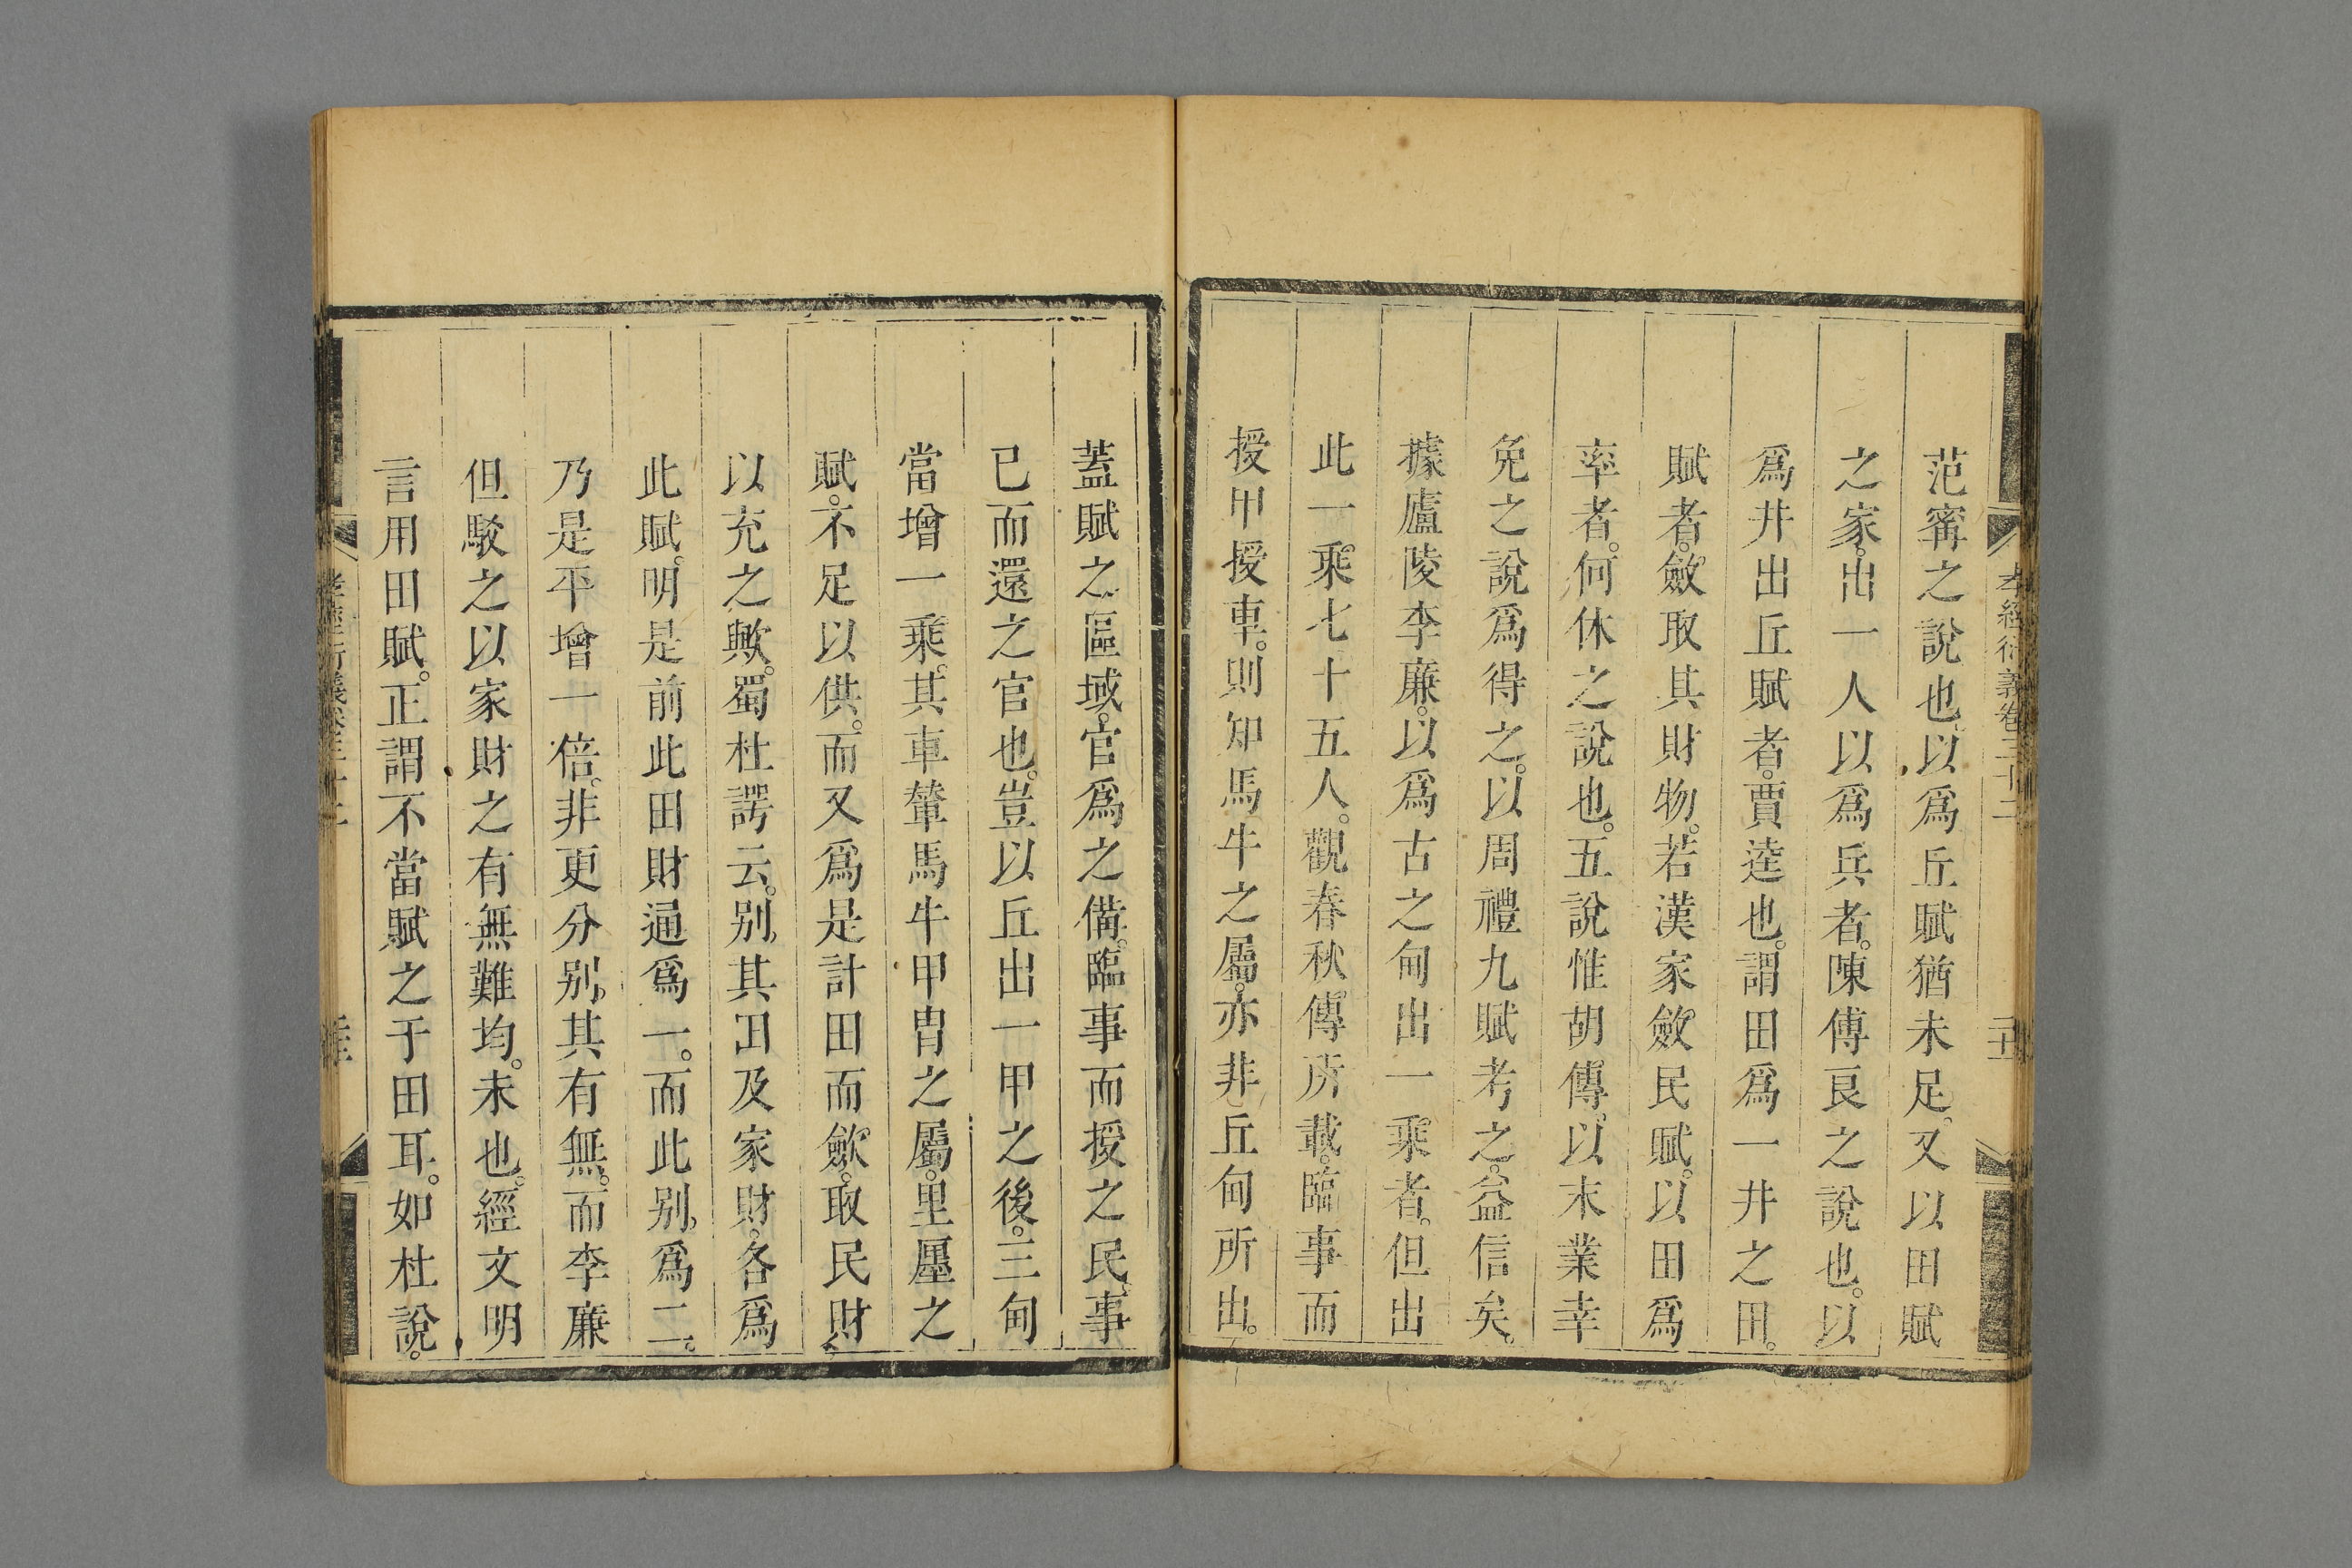 范甯之說也以爲丘賦猶未足又以田賦
之家出一人以爲兵者陳傅良之說也以
爲井出丘賦者賈逵也謂田爲一井之田
賦者斂取其財物若漢家斂民賦以田爲
率者何休之說也五說惟胡傳以末業幸
免之說爲得之以周禮九賦考之益信矣
據廬陵李廉以爲古之甸出一乘者但出
此一乘七十五人觀春秋傳所載臨事而
授甲授車則知馬牛之屬亦非丘甸所出
蓋賦之區域官爲之備臨事而授之民事
已而還之官也豈以丘出一甲之後三甸
當增一乘其車輦馬牛甲冑之屬里廛之
賦不足以供而又爲是計田而斂取民財
以充之歟蜀杜諤云別其田及家財各爲
此賦明是前此田財通爲一而此別爲二
乃是平增一倍非更分別其有無而李廉
但駁之以家財之有無難均未也經文明
言用田賦正謂不當賦之于田耳如杜說
孝經衍義卷二十二